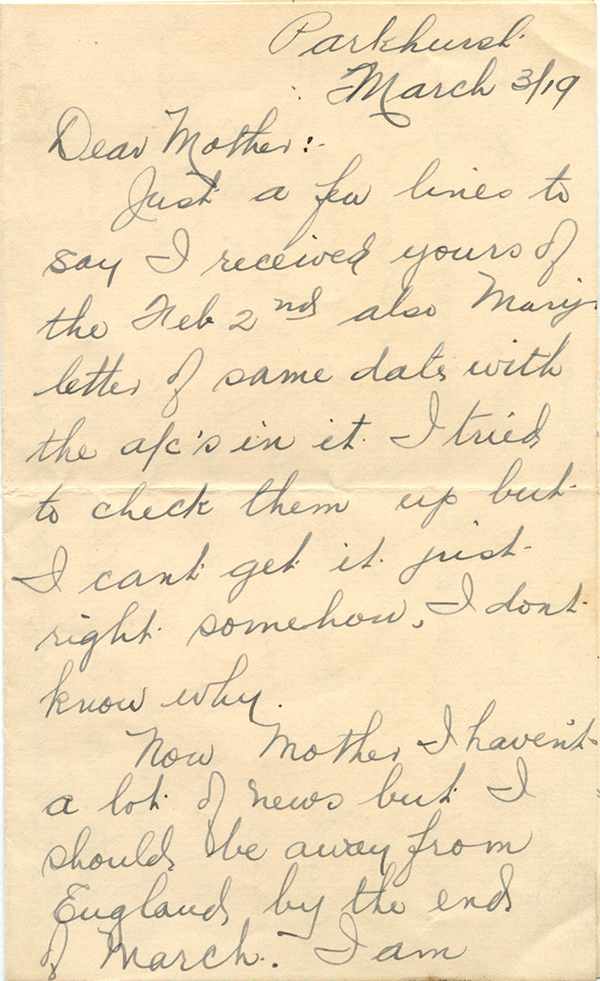 Parkhurst
March 3/19
Dear Mother:-
Just a few lines to
say I received yours of
the Feb 2nd also Marys
letter of same date with
the a/c's in it. I tried
to check them up but
I cant get it just
right somehow, I dont
know why.
Now Mother I haven't
a lot of news but I
should be away from
England by the end
of March. I am